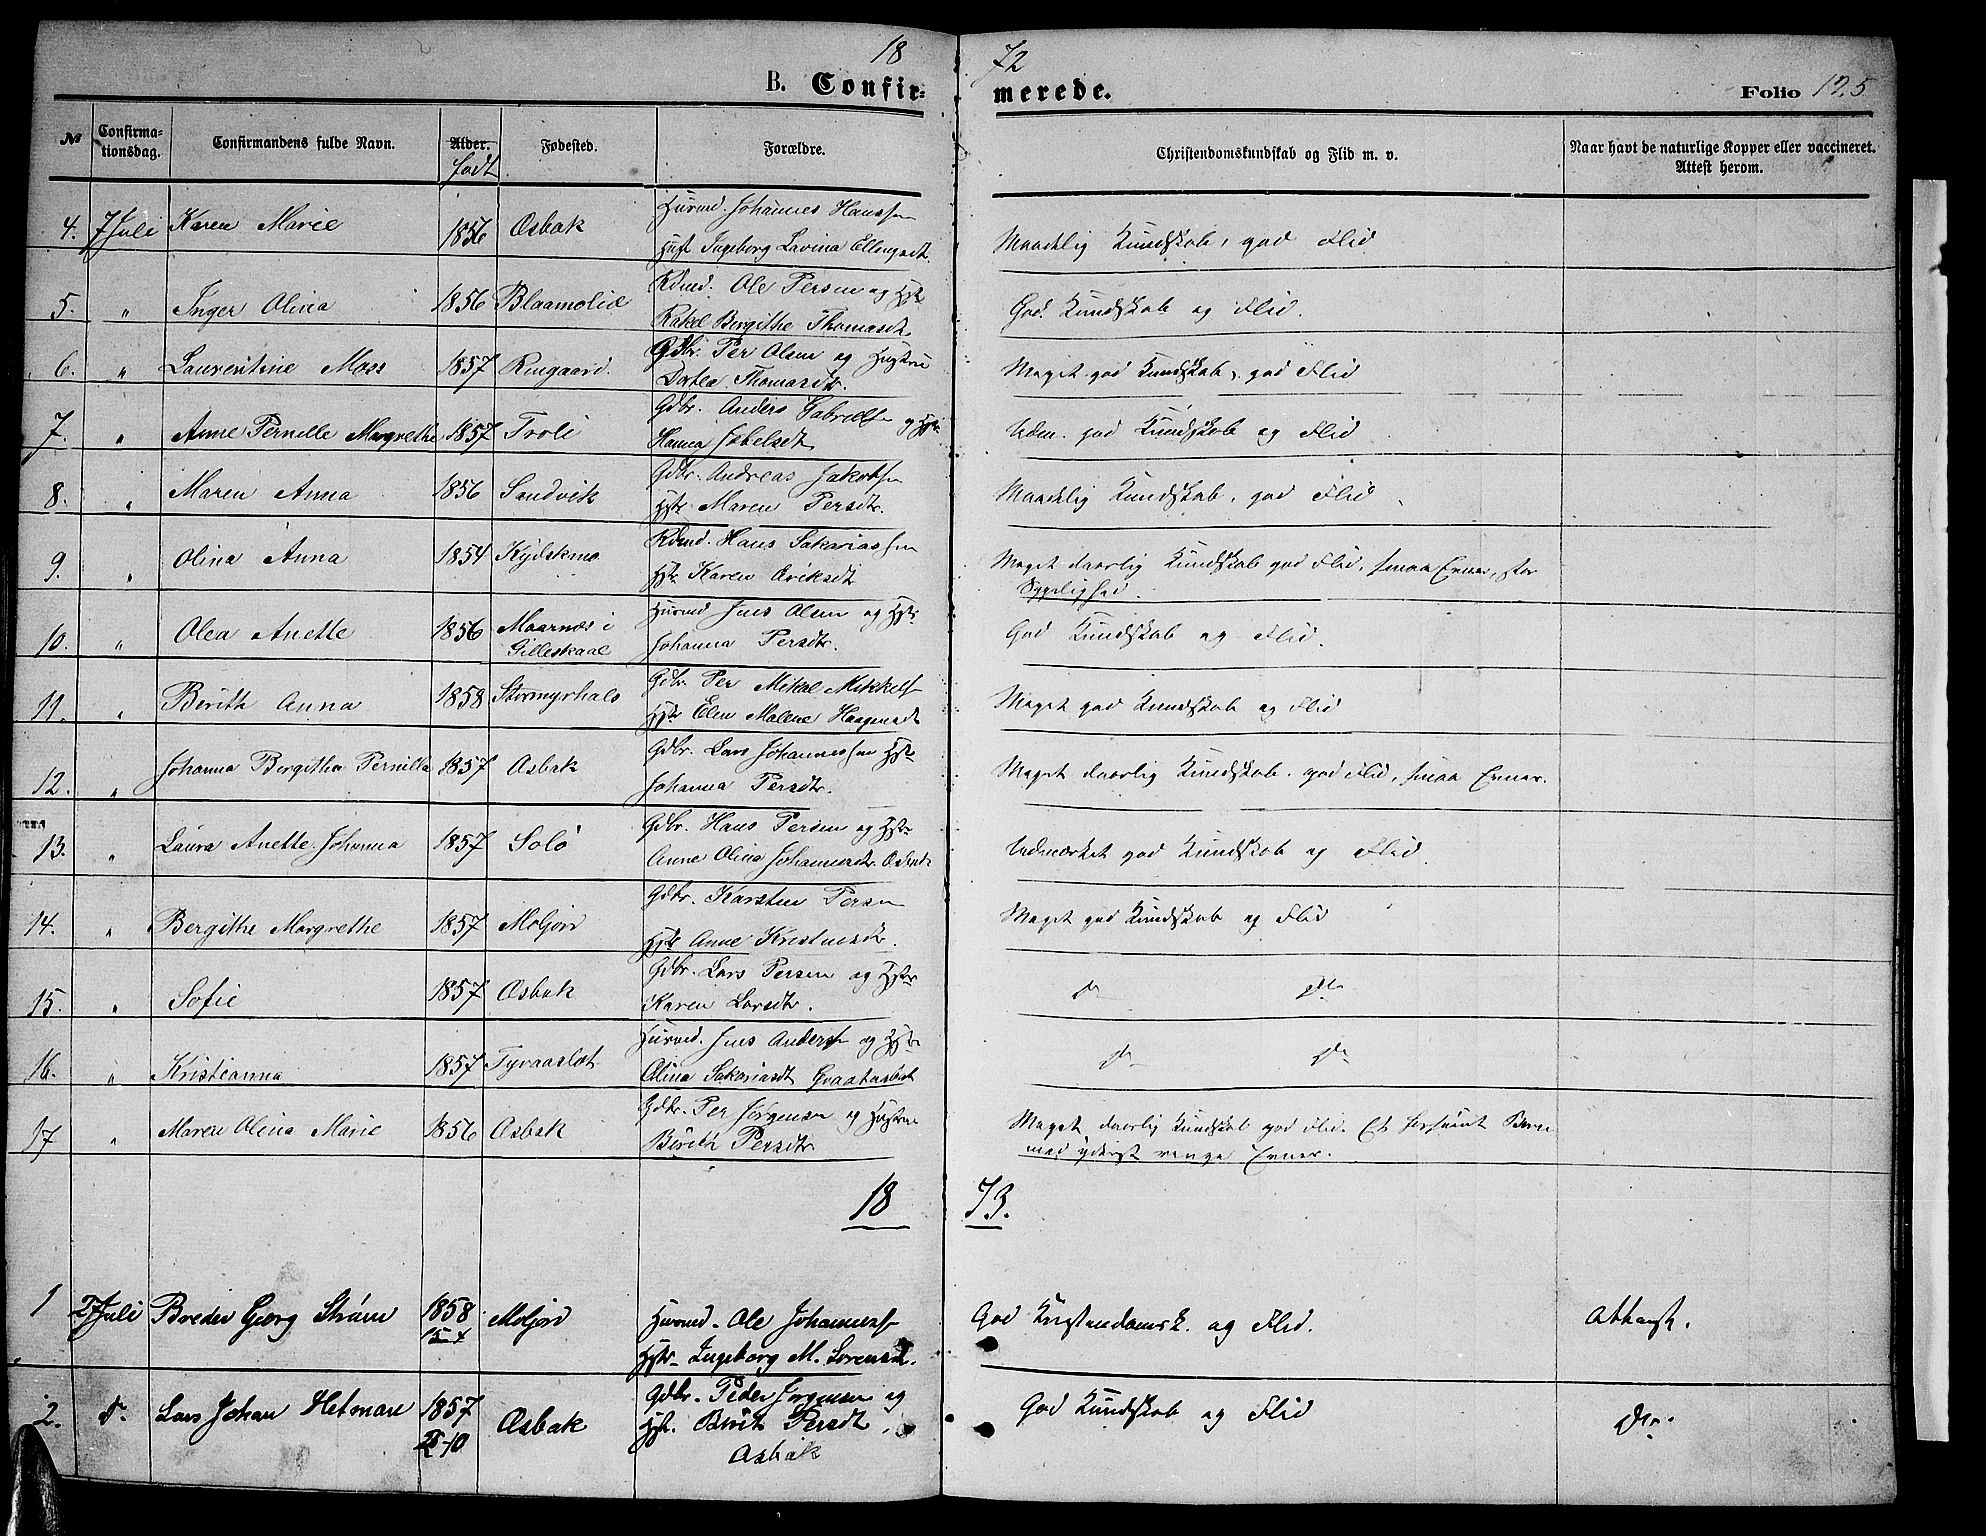 18 72
B. Confir- merede. Folio 125
№ Confirma-tionsdag. Confirmandens fulde Navn. Alder. født Fødested. Forældre. Christendomskundskab og Flid m. v. Naar havt de naturlige Kopper eller vaccineret. Attest herom.
4. 7 Juli Karen Marie 1856 Osbak Huusmd. Johannes Hanssen
Hust Ingeborg Lavina Ellingsdt. Maadelig Kundskab, god Flid
5. " Inger Olina 1856 Blaamolid Rdmd. Ole Persen og Hstr
Rakel Bergithe Thomasdt. God Kundskab og Flid.
6. " Laurentine Moss 1857 Ringaard. Gdbr. Per Olsen og Hustru
Dortea Thomasdtr. Meget god Kundskab, god Flid
7. " Anne Pernille Margrethe 1857 Troli Gdbr. Anders Gabrielsn og Hstr
Hanna Jobelsdt Udm. god Kundskab og Flid
8. " Maren Anna 1856 Sandvik Gdbr. Andreas Jakobsen
Hstr Maren Persdtr. Maadelig Kundskab, god Flid
9. " Olina Anna 1854 Kydskmo Rdmd. Hans Sakariassen
Hstr Karen Eriksdt Meget daarlig Kundskab god Flid, smaa Evner, stor
Sygelighed.
10. " Olea Anette 1856 Maarnæs i
Gilleskaal Huusmd Jens Olsen og Hstr
Johanna Persdtr. God Kundskab og Flid.
11. " Berith Anna 1858 Stormyrhals Gdbr Per Mikal Mikkelsn
Hstr Elen Malene Haagensdt Meget god Kundskab og Flid
12. " Johanna Bergitha Pernilla 1857 Osbak Gdbr. Lars Johannessen Hstr
Johanna Persdtr. Meget daarlig Kundskab. god Flid, smaa Evner.
13. " Laura Anette Johanna 1857 Solø Gdbr. Hans Persen og Hstr
Anne Olina Johannesdtr Udmærket god Kundskab og Flid.
14. " Bergithe Margrethe 1857 Moljord Gdbr. Karsten Persen
Hstr Anne Kristensdtr. Meget god Kundskab og Flid
15. " Sofie 1857 Osbak Gdbr. Lars Persen og Hstr
Karen Larsdtr. do do
16. " Kristianna 1857 Tyraaslet Huusmd. Jens Andersn og Hstr
Olina Sakariasdt Graataabak do do
17 " Maren Olina Marie 1856 Osbak Gdbr. Per Jørgensen og Hustru
Berith Persdtr Meget daarlig Kundskab god Flid. Et forsømt Barn
med yderst ringe Evner.
18 73.
1 27 Juli Breder Georg Strøm 1858
15-4 Moljord Huusmd. Ole Johannessn
Hstr Ingeborg M. Sorensd. God Kristendomsk. og Flid. Atteast.
2. do Lars Johan Hetman 1857
10 Osbak Gdbr. Peder Jørgensen og
Hst. Berit Persdt,
Osbak God Kundskab og Flid do.